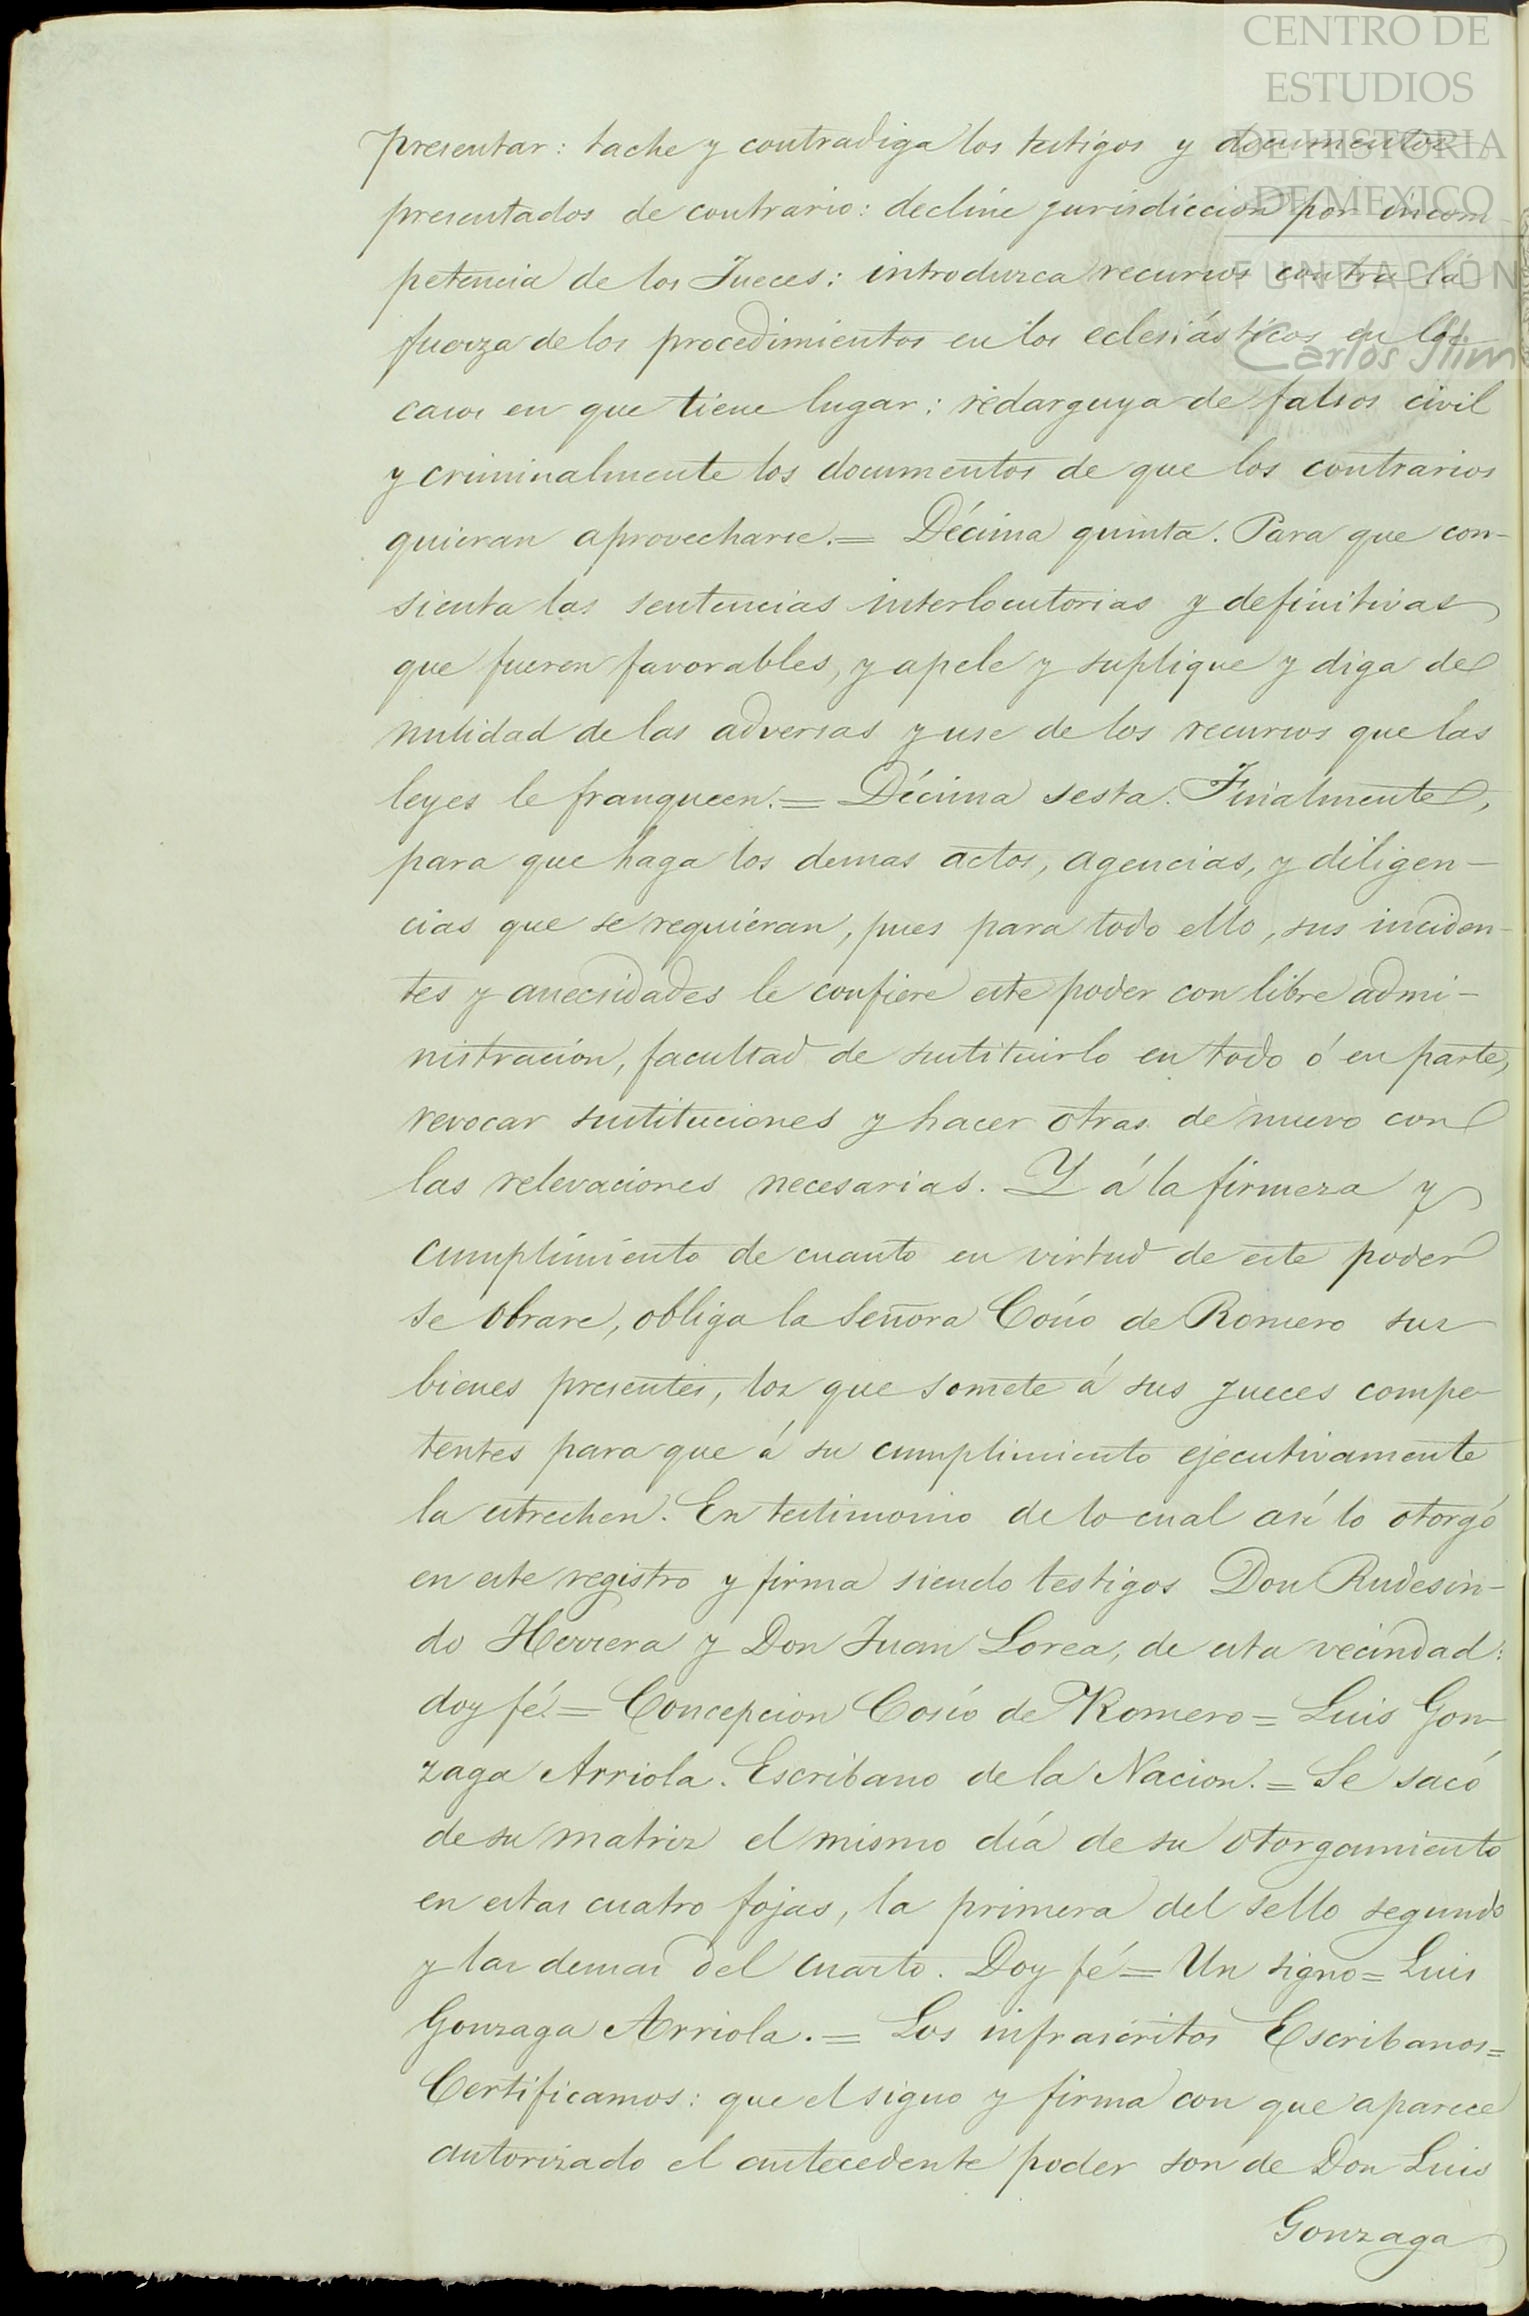 CENTRO DE
ESTUDIOS
DE HISTORIA
DE MEXICO
FUNDACIÓN
Carlos Slim
presentar: tache y contradiga los testigos y documentos
presentados de contrario: decline jurisdiccion por incom
petencia de los Jueces: introduzca recursos contra la
fuerza de los procedimientos en los eclesiásticos en los
casos en que tiene lugar: redarguya de falsos civil
y criminalmente los documentos de que los contrarios
quieran aprovecharse.= Décima quinta. Para que con-
sienta las sentencias interlocutorias y definitivas
que fueren favorables, y apele y suplique y diga de
nulidad de las adversas y use de los recursos que las
leyes le franqueen.= Décima sesta. Finalmente,
para que haga los demas actos, agencias, y diligen-
cias que se requieran, pues para todo ello, sus inciden-
tes y anecsidades le confiere este poder con libre admi-
nistracion, facultad de sustituirlo en todo ó en parte,
revocar sustituciones y hacer otras de nuevo con
las relevaciones necesarias. Y á la firmeza y
cumplimiento de cuanto en virtud de este poder
se obrare, obliga la Señora Cosío de Romero sus
bienes presentes, los que somete á sus jueces compe-
tentes para que á su cumplimiento ejecutivamente
la estrechen. En testimonio de lo cual así lo otorgó
en este registro y firma siendo testigos Don Rudesin-
do Herrera y Don Juan Lorea, de esta vecindad:
doy fé.= Concepcion Cosío de Romero = Luis Gon-
zaga Arriola. Escribano de la Nacion.= Se sacó
de su matriz el mismo día de su otorgamiento
en estas cuatro fojas, la primera del sello segundo
y las demas del cuarto. Doy fé = Un signo = Luis
Gonzaga Arriola.= Los infrascritos Escribanos=
Certificamos: que el signo y firma con que aparece
autorizado el antecedente poder son de Don Luis
Gonzaga